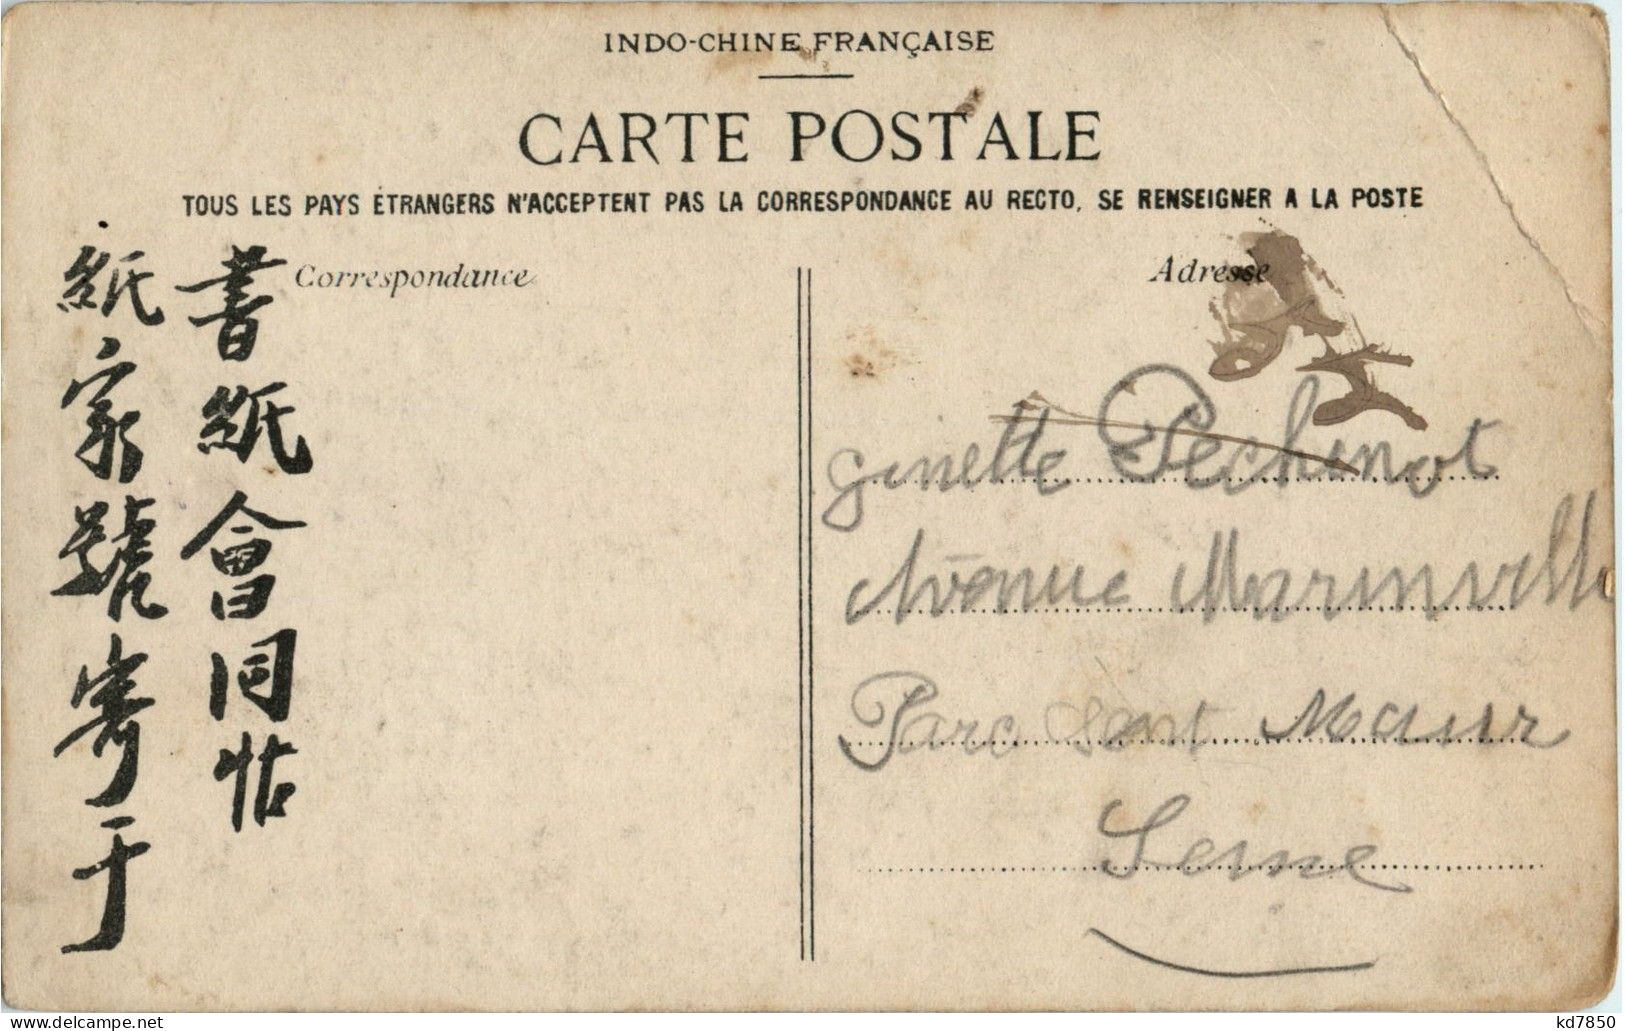 INDO-CHINE FRANÇAISE
CARTE POSTALE
TOUS LES PAYS ÉTRANGERS N'ACCEPTENT PAS LA CORRESPONDANCE AU RECTO, SE RENSEIGNER A LA POSTE
Correspondance
書紙會同帖
紙家號寄于
Adresse
Ginette Pechinot
Avenue Marinville
Parc Sent Maur
Seine
kd7850